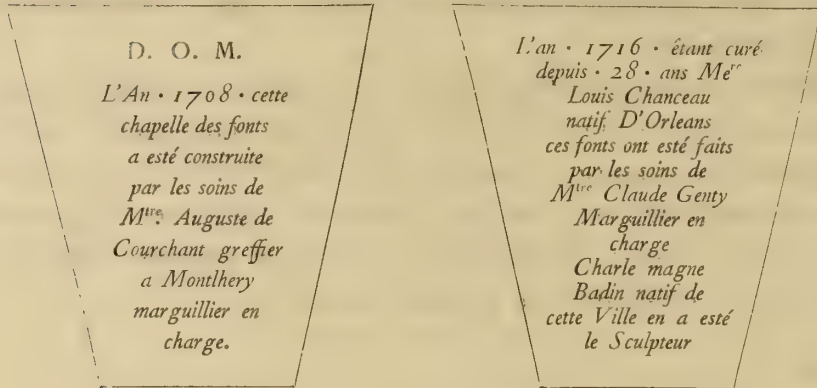 D. O. M.
L'An · 1708 · cette
chapelle des fonts
a esté construite
par les soins de
Mtre. Auguste de
Courchant greffier
a Montlhery
marguillier en
charge.
L'an · 1716 · étant curé
depuis · 28 · ans Mere
Louis Chanceau
natif D'Orleans
ces fonts ont esté faits
par les soins de
Mtre Claude Genty
Marguillier en
charge
Charle magne
Badin natif de
cette Ville en a esté
le Sculpteur